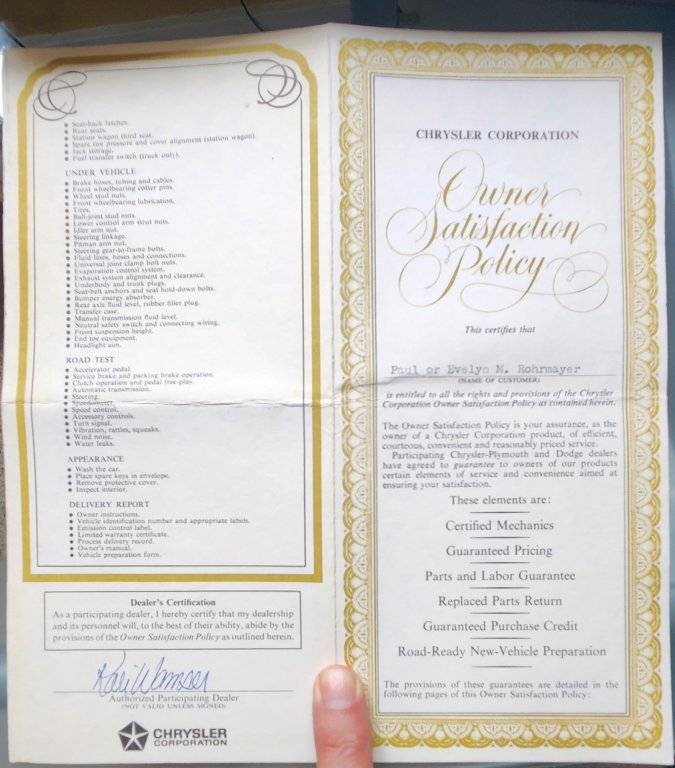 Seat-back latches.
Rear seats.
Station wagon third seat.
Spare tire pressure and cover alignment (station wagon).
Jack storage.
Fuel transfer switch (truck only).
UNDER VEHICLE
Brake hoses, tubing and cables.
Front wheelbearing cotter pins.
Wheel stud nuts.
Front wheelbearing lubrication.
Tires.
Ball-joint stud nuts.
Lower control arm strut nuts.
Idler arm nut.
Steering linkage.
Pitman arm nut.
Steering gear-to-frame bolts.
Fluid lines, hoses and connections.
Universal joint clamp bolt nuts.
Evaporation control system.
Exhaust system alignment and clearance.
Underbody and trunk plugs.
Seat-belt anchors and seat hold-down bolts.
Bumper energy absorber.
Rear axle fluid level, rubber filler plug.
Transfer case.
Manual transmission fluid level.
Neutral safety switch and connecting wiring.
Front suspension height.
End toe equipment.
Headlight aim.
ROAD TEST
Accelerator pedal.
Service brake and parking brake operation.
Clutch operation and pedal free-play.
Automatic transmission.
Steering.
Speedometer.
Speed control.
Accessory controls.
Turn signal.
Vibration, rattles, squeaks.
Wind noise.
Water leaks.
APPEARANCE
Wash the car.
Place spare keys in envelope.
Remove protective cover.
Inspect interior.
DELIVERY REPORT
Owner instructions.
Vehicle identification number and appropriate labels.
Emission control label.
Limited warranty certificate.
Process delivery record.
Owner's manual.
Vehicle preparation form.
Dealer's Certification
As a participating dealer, I hereby certify that my dealership
and its personnel will, to the best of their ability, abide by the
provisions of the Owner Satisfaction Policy as outlined herein.
Authorized Participating Dealer
(NOT VALID UNLESS SIGNED)
CHRYSLER
CORPORATION
CHRYSLER CORPORATION
Owner
Satisfaction
Policy
This certifies that
Paul or Evelyn M. Rohrmayer
(NAME OF CUSTOMER)
is entitled to all the rights and provisions of the Chrysler
Corporation Owner Satisfaction Policy as contained herein.
The Owner Satisfaction Policy is your assurance, as the
owner of a Chrysler Corporation product, of efficient,
courteous, convenient and reasonably priced service.
Participating Chrysler-Plymouth and Dodge dealers
have agreed to guarantee to owners of our products
certain elements of service and convenience aimed at
ensuring your satisfaction.
These elements are:
Certified Mechanics
Guaranteed Pricing
Parts and Labor Guarantee
Replaced Parts Return
Guaranteed Purchase Credit
Road-Ready New-Vehicle Preparation
The provisions of these guarantees are detailed in the
following pages of this Owner Satisfaction Policy: